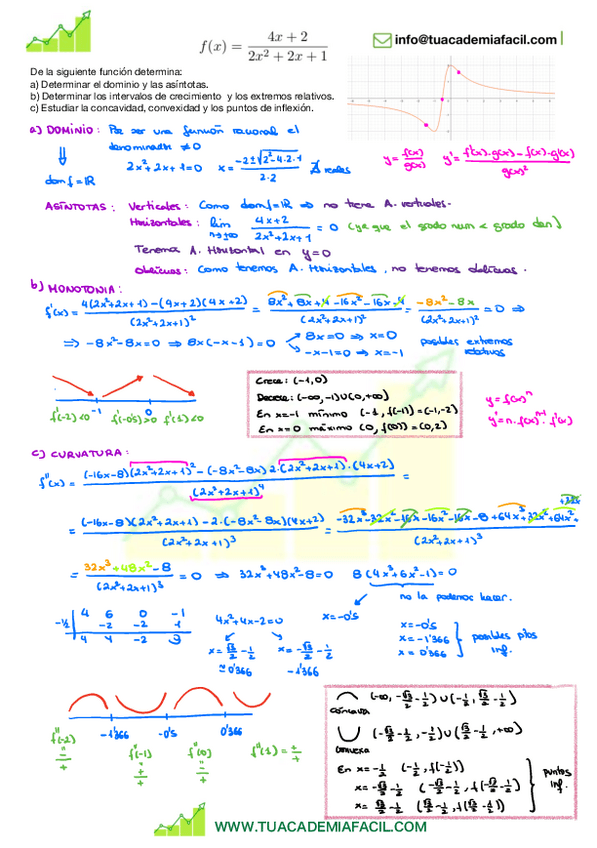 f(x) = (4x + 2)/(2x² + 2x + 1)
info@tuacademiafacil.com
De la siguiente función determina:
a) Determinar el dominio y las asíntotas.
b) Determinar los intervalos de crecimiento y los extremos relativos.
c) Estudiar la concavidad, convexidad y los puntos de inflexión.
a) DOMINIO: Por ser una función racional el
denominador ≠ 0
2x²+2x+1=0 x = (-2±√(2²-4·2·1))/(2·2) ∄ reales
dom f = ℝ
y = f(x)/g(x) y' = (f'(x)·g(x) - f(x)·g'(x))/g(x)²
ASÍNTOTAS: Verticales: Como dom f = ℝ ⇒ no tiene A. verticales.
Horizontales: lim (4x+2)/(2x²+2x+1) = 0 (ya que el grado num < grado den)
Tenemos A. Horizontal en y=0
Oblicuas: Como tenemos A. Horizontales, no tenemos oblicuas.
b) MONOTONIA:
f'(x) = (4(2x²+2x+1)-(4x+2)(4x+2))/(2x²+2x+1)² = (8x²+8x+4-16x²-16x-4)/(2x²+2x+1)² = (-8x²-8x)/(2x²+2x+1)² = 0 ⇒
⇒ -8x²-8x=0 ⇒ 8x(-x-1)=0 8x=0 ⇒ x=0
-x-1=0 ⇒ x=-1
posibles extremos
relativos
-1 0
f'(-2)<0 f'(-0'5)>0 f'(1)<0
Crece: (-1,0)
Decrece: (-∞,-1)∪(0,+∞)
En x=-1 mínimo (-1, f(-1)) = (-1,-2)
En x=0 máximo (0, f(0)) = (0,2)
y = f(x)ⁿ
y' = n·f(x)ⁿ⁻¹·f'(x)
c) CURVATURA:
f''(x) = ((-16x-8)(2x²+2x+1)²-(-8x²-8x)2·(2x²+2x+1)·(4x+2))/(2x²+2x+1)⁴ =
= ((-16x-8)(2x²+2x+1)-2·(-8x²-8x)(4x+2))/(2x²+2x+1)³ = (-32x³-32x²-16x-16x²-16x-8+64x³+32x²+64x²+32x)/(2x²+2x+1)³
= (32x³+48x²-8)/(2x²+2x+1)³ = 0 ⇒ 32x³+48x²-8=0 8(4x³+6x²-1)=0
no la podemos hacer.
4 6 0 -1
-1/2 -2 -2 1
4 4 -2 0
x=-0'5
4x²+4x-2=0
x = √3/2 - 1/2 x = -√3/2 - 1/2
≃ 0'366 -1'366
x=-0'5
x=-1'366
x=0'366
posibles ptos
inf.
-1'366 -0'5 0'366
f''(-2) f''(-1) f''(0) f''(1) =
(-∞, -√3/2-1/2)∪(-1/2, √3/2-1/2)
cóncava
(-√3/2-1/2, -1/2)∪(√3/2-1/2, +∞)
convexa
En x=-1/2 (-1/2, f(-1/2))
x=-√3/2-1/2 (-√3/2-1/2, f(-√3/2-1/2))
x=√3/2-1/2 (√3/2-1/2, f(√3/2-1/2))
puntos
inf.
WWW.TUACADEMIAFACIL.COM